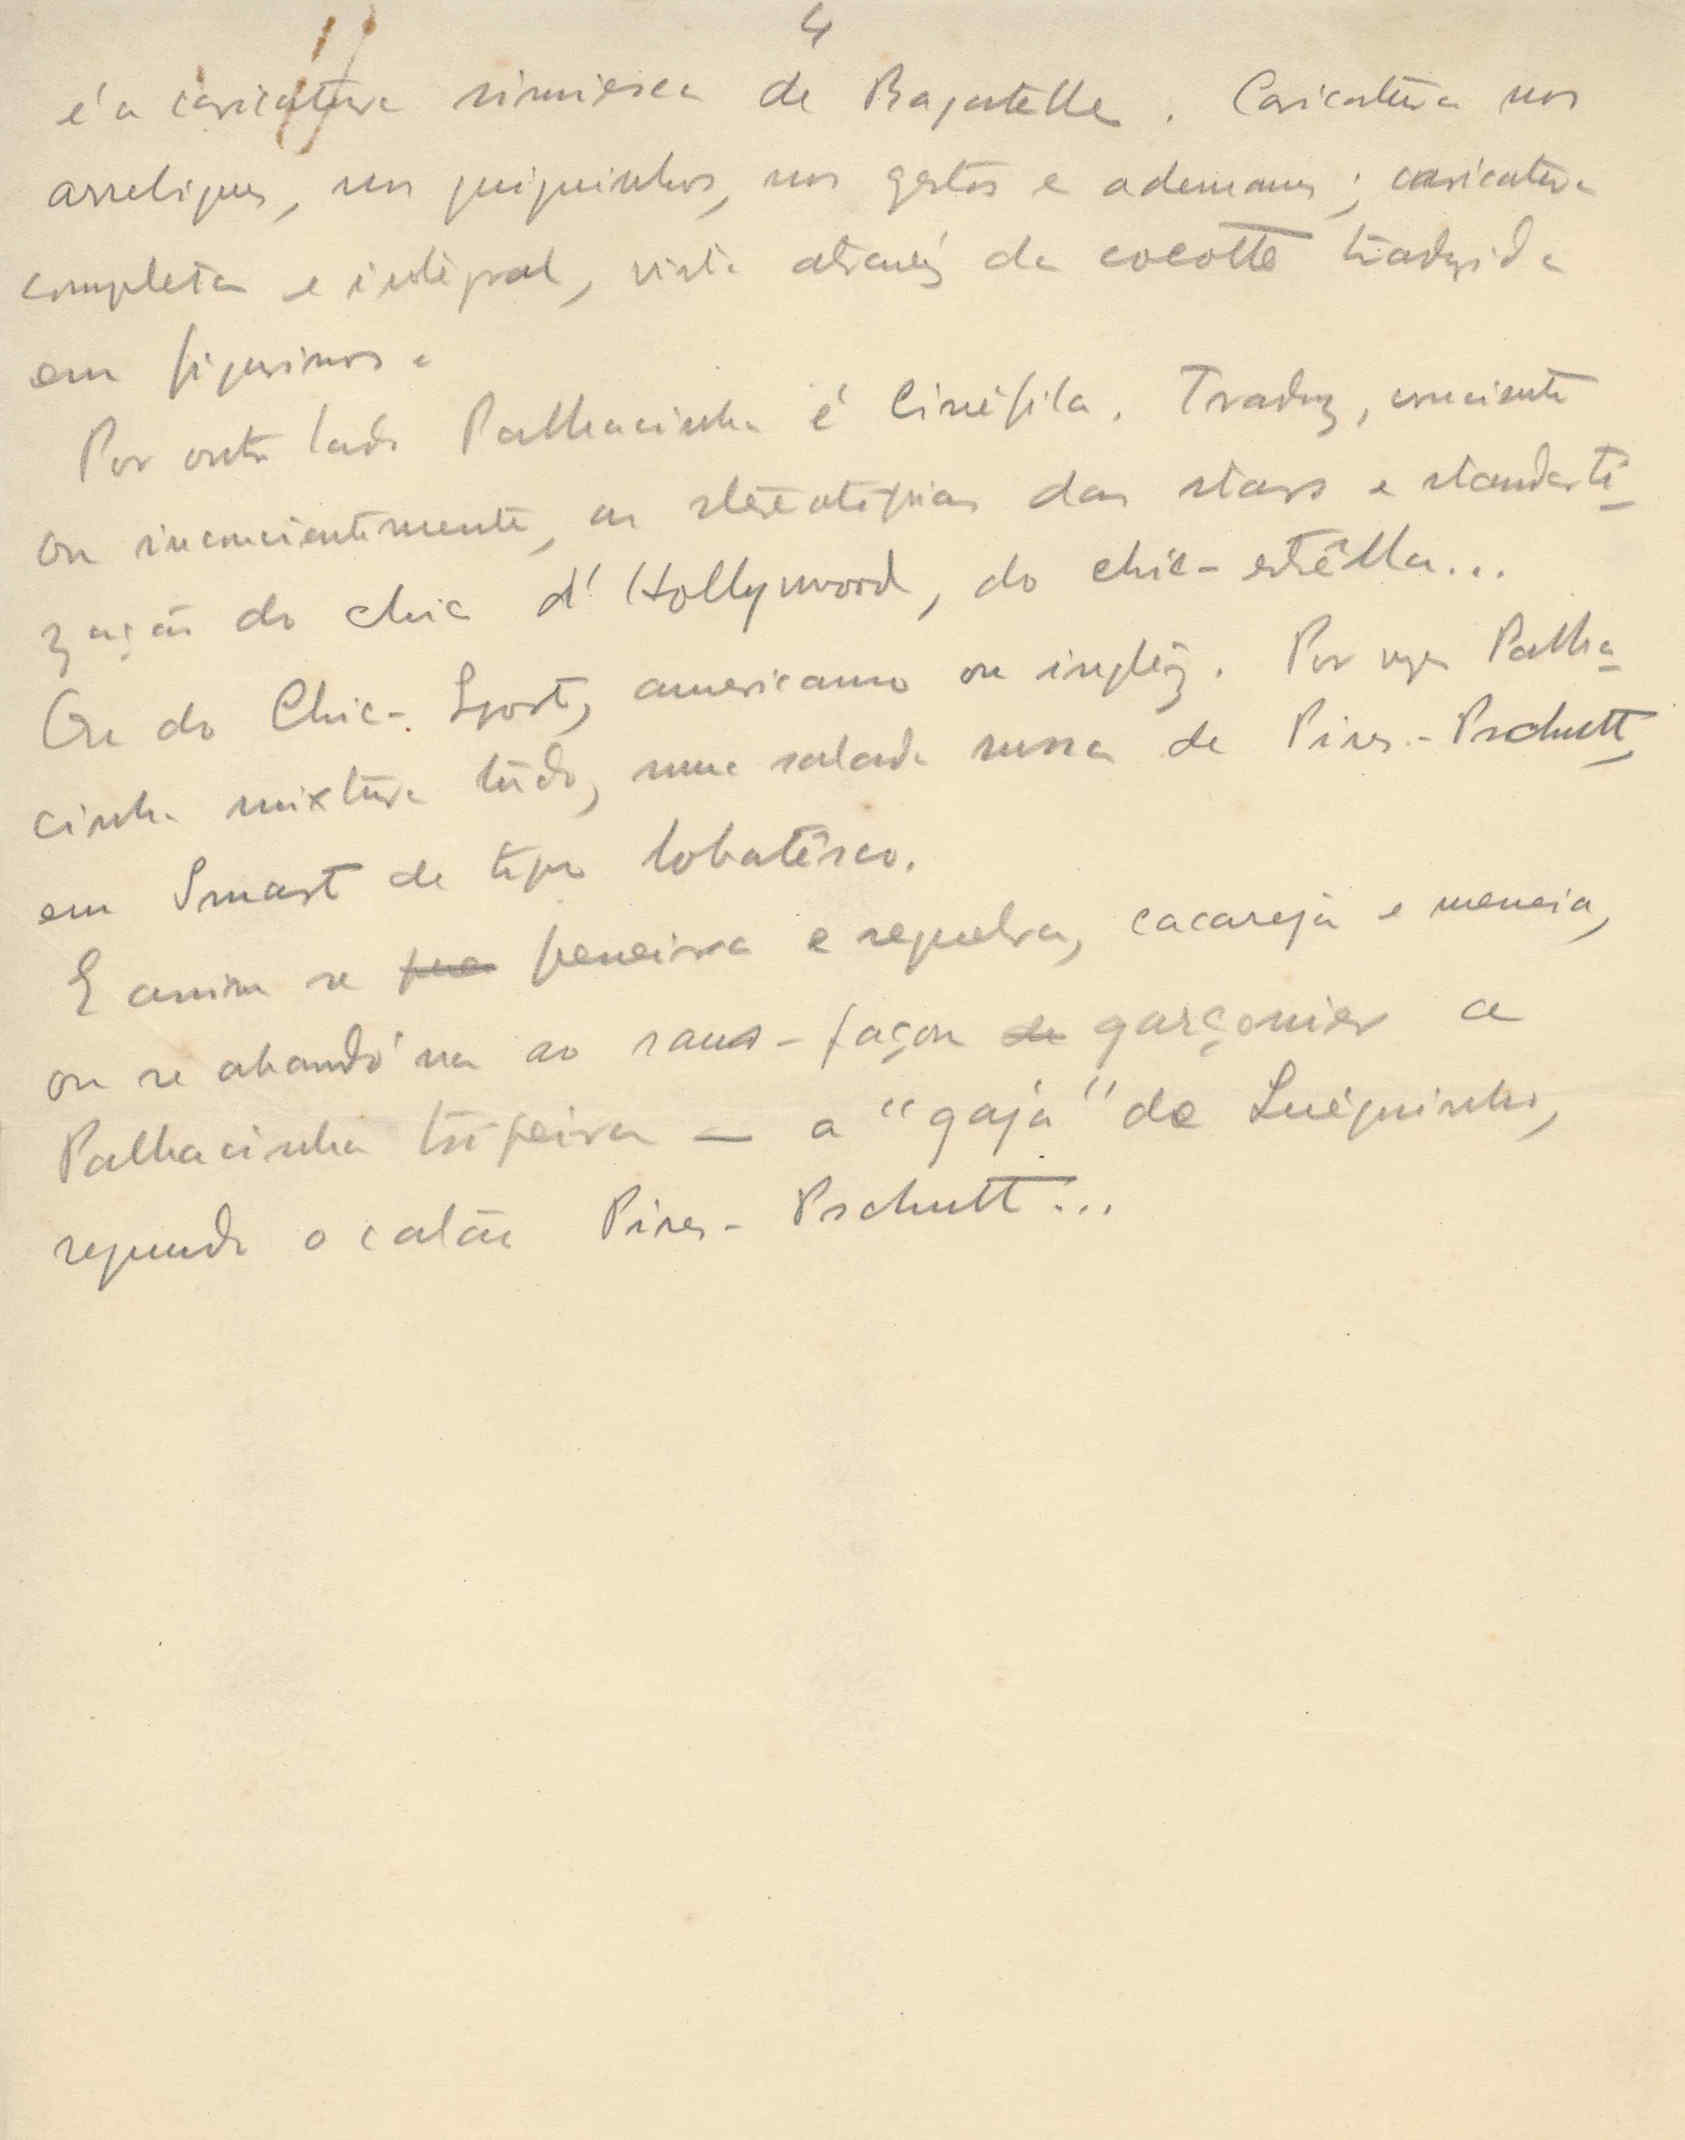 4
é a caricatura simiesca de Bagatelle. Caricatura nos
arrebiques, nos guiguinhos, nos gestos e ademanes; caricatura
completa e integral, vista através da cocotte traduzida
em figurinos.
Por outro lado Palhacinha é Cinéfila. Traduz, conciente
ou inconcientemente, as stereotipias das stars e standarti-
zação do chic d'Hollywood, do chic-estrêlla...
Ou do Chic-Sport, americano ou inglêz. Por vezes Palha-
cinha mixtura tudo, numa salada russa de Pires-Pschutt,
em Smart de tipo lobatêsco.
E assim se pene peneira e requebra, cacareja e meneia,
ou se abandóna ao sans-façon de garçonier a
Palhacinha tripeira — a "gaja" de Luèquinho,
segundo o calão Pires-Pschutt...